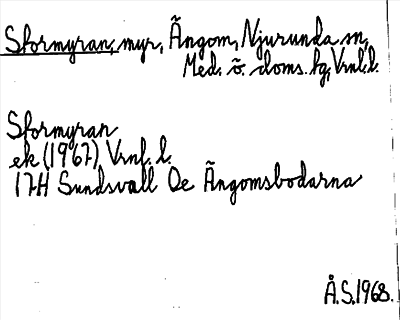 Stormyran, myr, Ängom, Njurunda sn,
Med. ö. doms. fg, Vrnl. l.
Stormyran
ek (1967) Vrnl. l.
17H Sundsvall 0e Ängomsbodarna
Å.S. 1968.